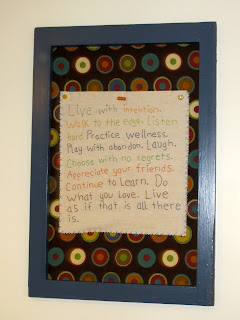 Live with intention.
Walk to the edge. Listen
hard. Practice wellness.
Play with abandon. Laugh.
Choose with no regrets.
Appreciate your friends.
Continue to Learn. Do
what you Love. Live
as if that is all there
is.